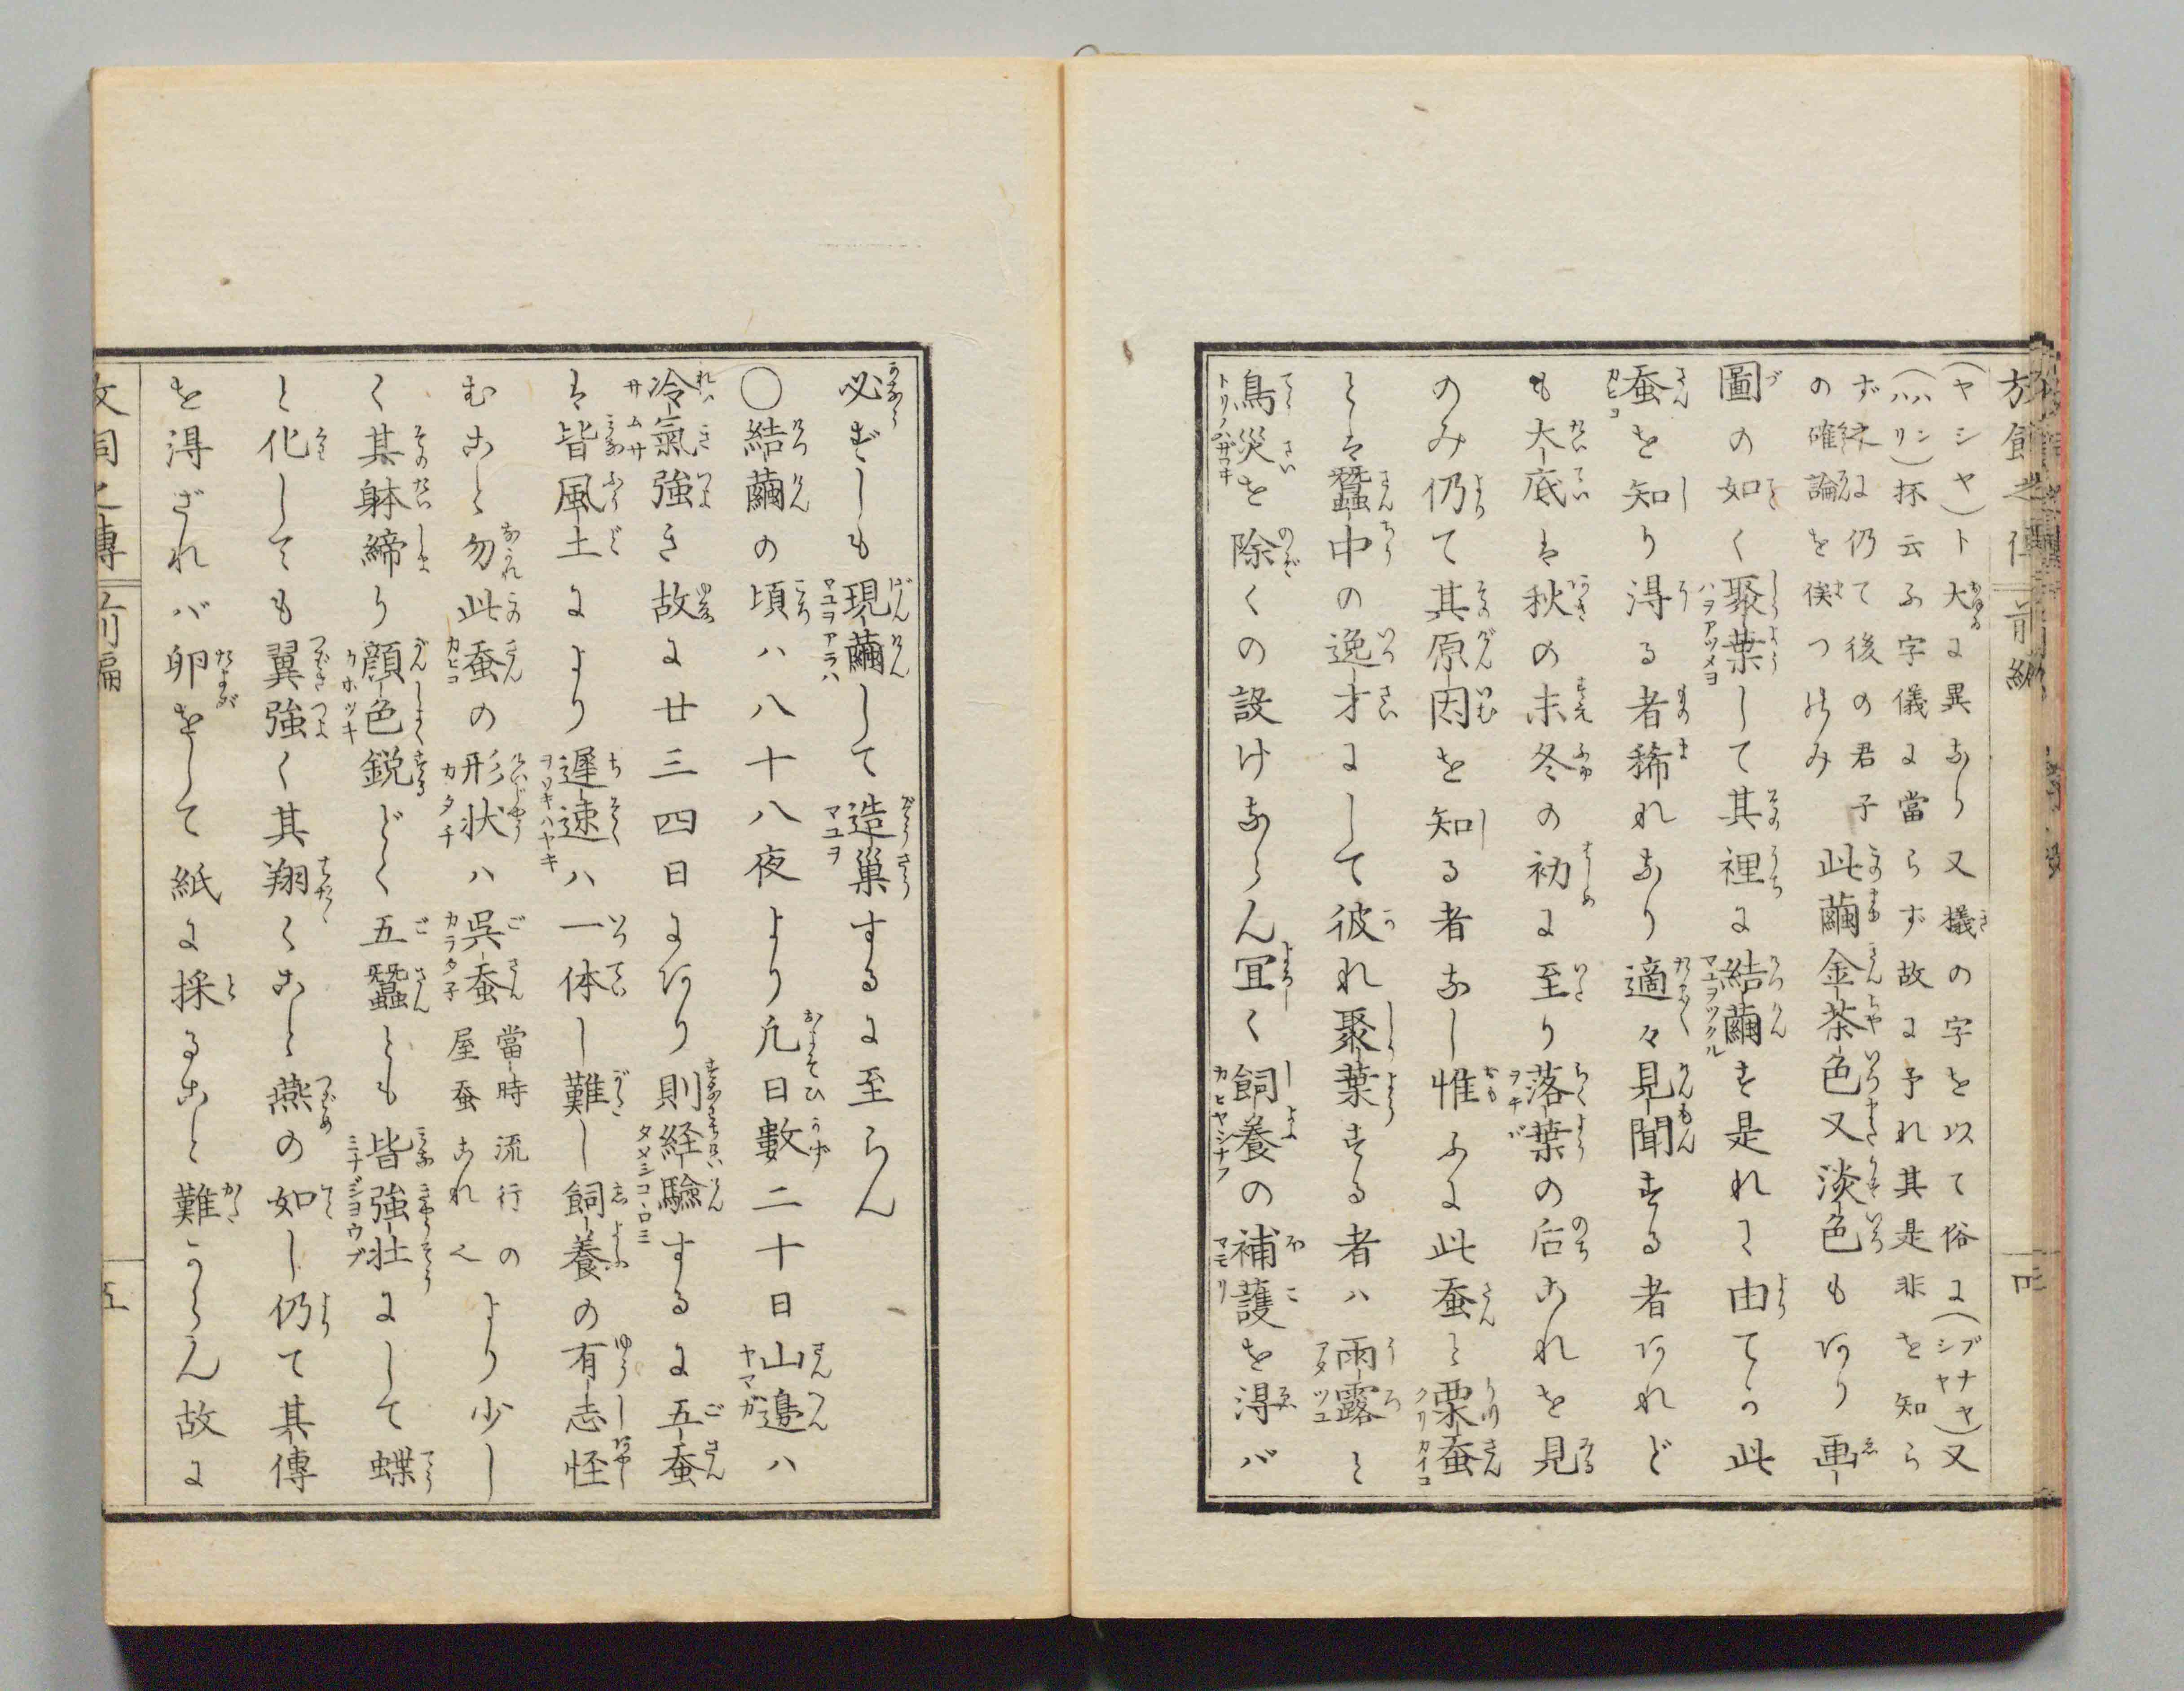 (ヤシヤ)ト大に異なり又㰕の字を以て俗に(ブナヤ)又(シヤ)
(ハリ)(ハシ)抔云ふ字儀に當らず故に予れ其是非を知ら
ず仍て後の君子
の確論を俟つのみ
此繭金茶色又淡色もあり画
圖の如く聚葉して其裡に結繭す是れに由てか此
蚕を知り得る者稀れなり適々見聞する者あれど
も大底は秋の末冬の初に至り落葉の后これを見
のみ仍て其原因を知る者なし惟ふに此蚕は栗蚕
とは蠶中の逸才にして彼れ聚葉する者ハ雨露と
鳥災を除くの設けならん冝く飼養の補護を得バ
必ずしも現繭して造巣するに至らん
〇結繭の頃ハ八十八夜より凡日數二十日山邉ハ
冷氣強き故に廿三四日にあり則経驗するに五蚕
は皆風土により遲速ハ一体し難し飼養の有志怪
むこと勿れ此蚕の形状ハ呉蚕當時流行の屋蚕これ也より少し
く其躰締り顔色鋭どく五蠶とも皆強壮にして蝶
と化しても翼強く其翔ること燕の如し仍て其傳
を淂ざれバ卵をして紙に採ること難からん故に
之傳 前編 五